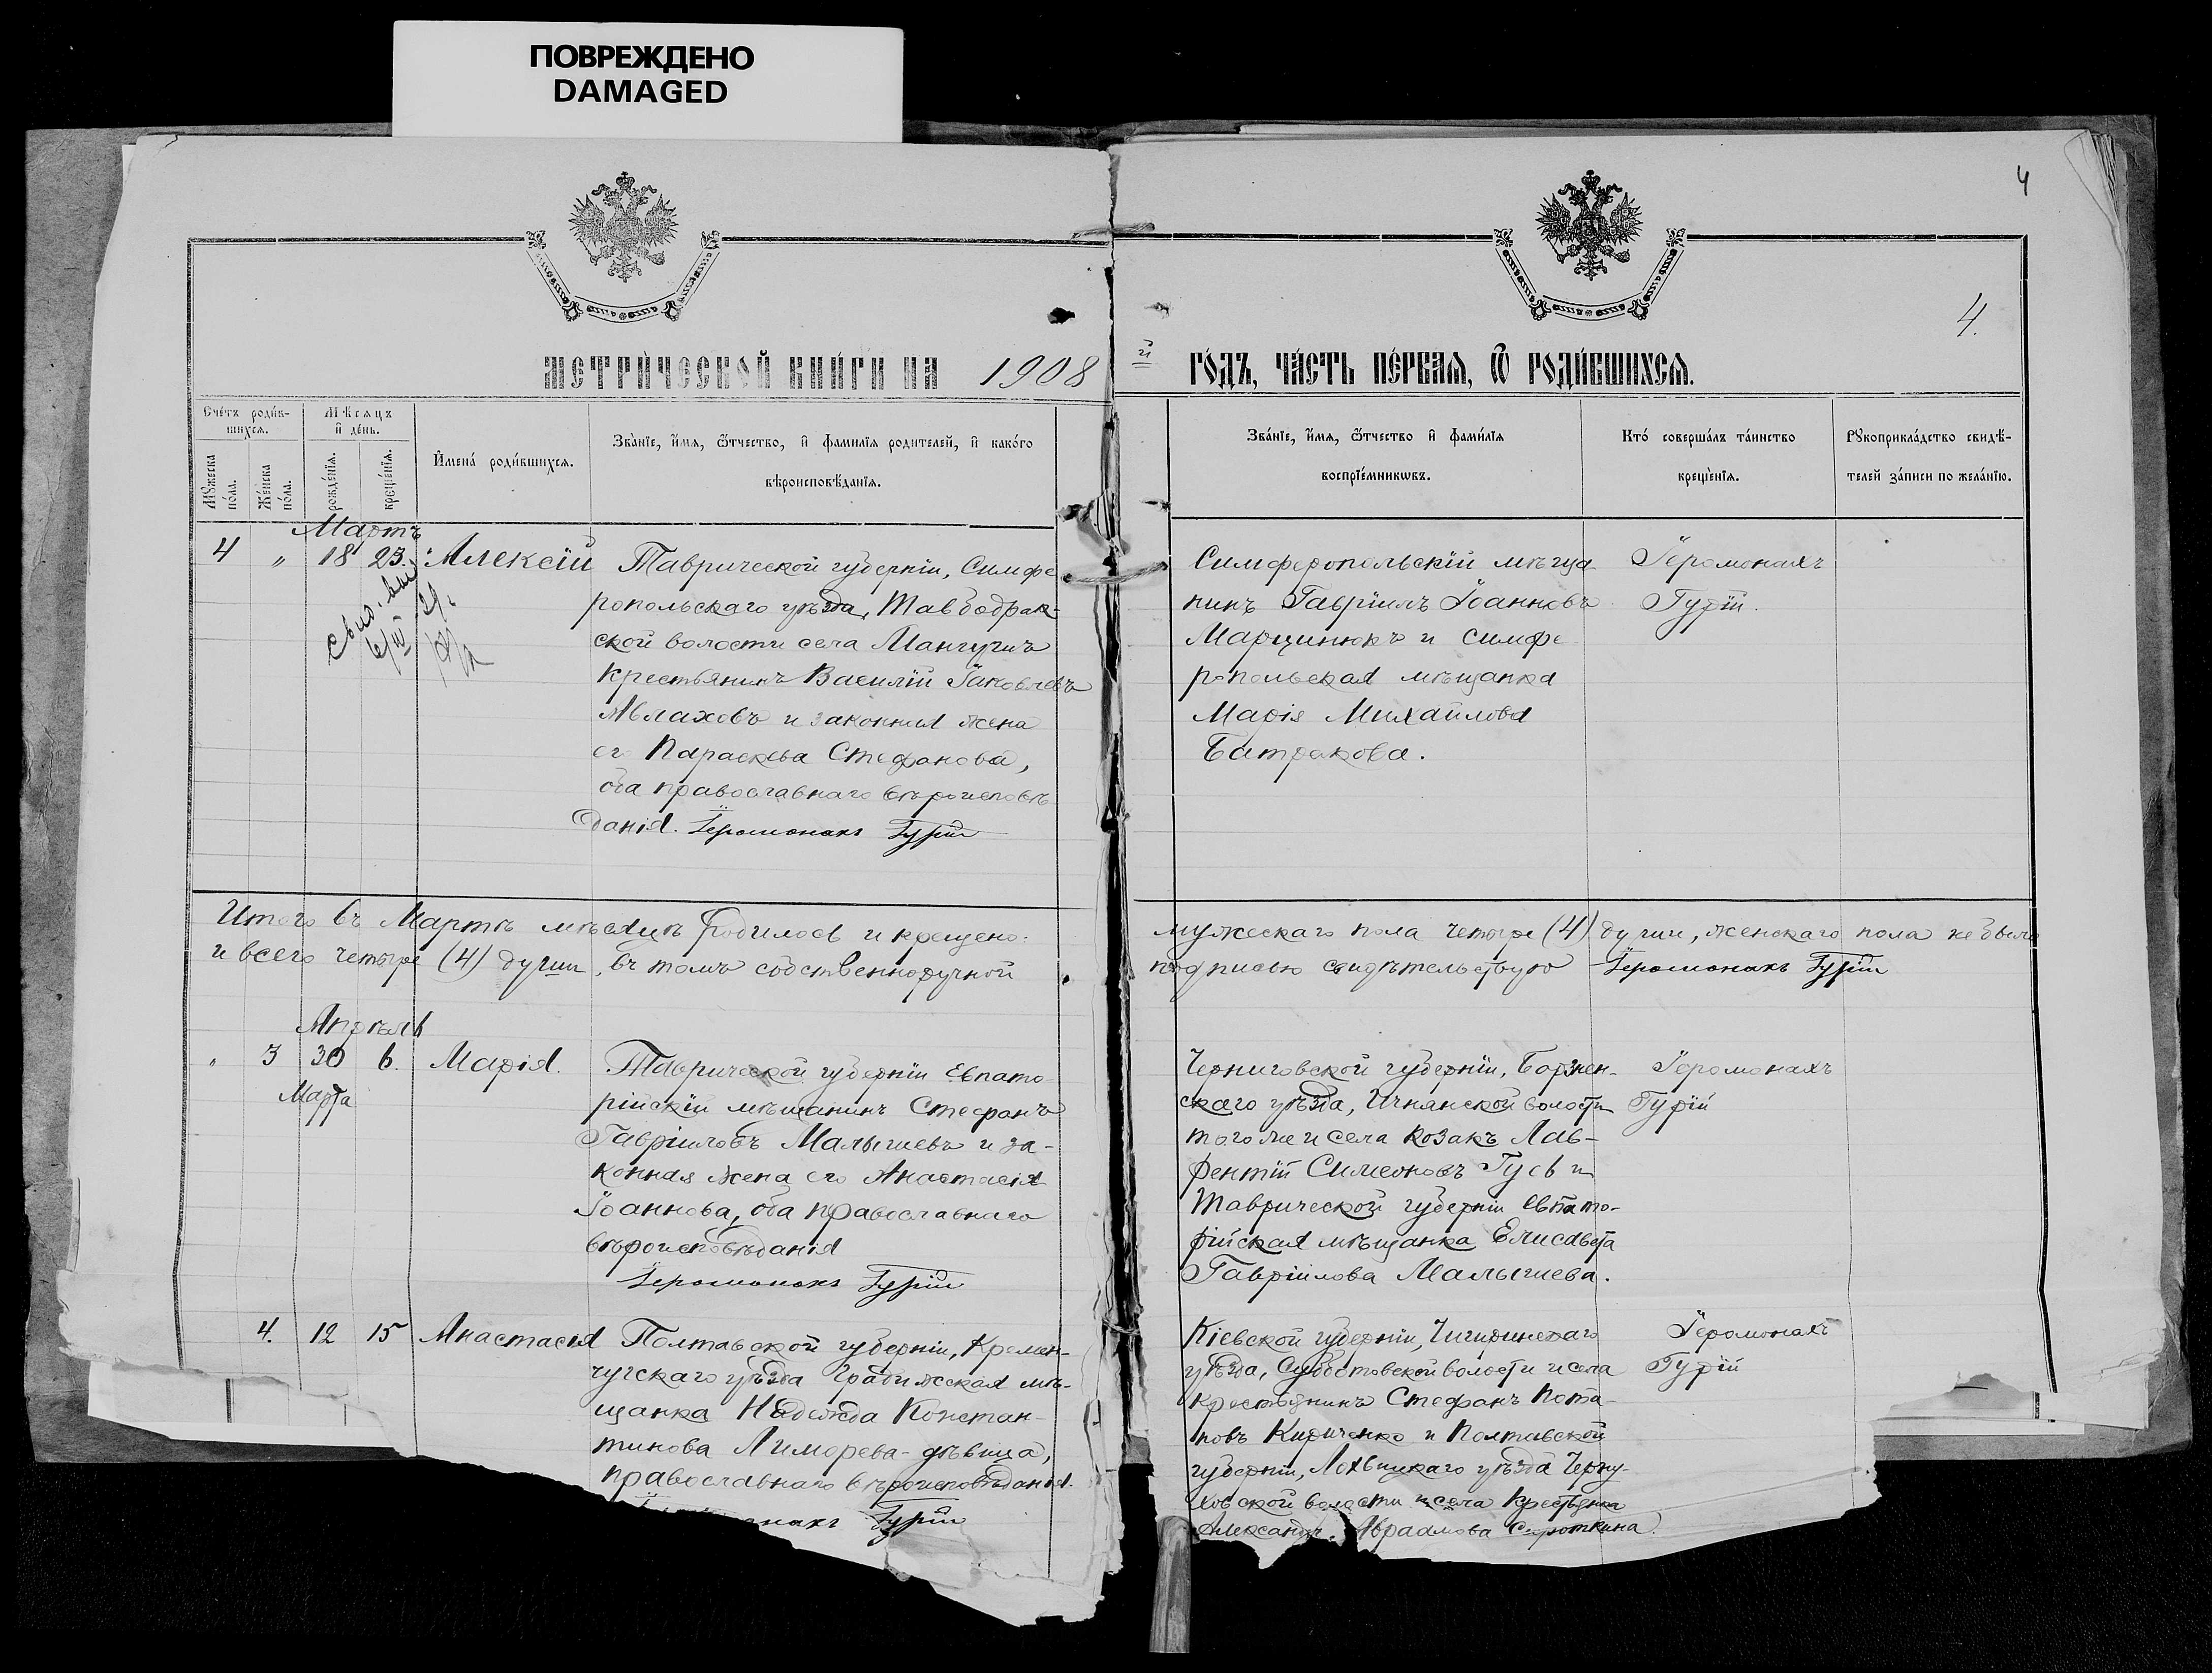 ПОВРЕЖДЕНО
DAMAGED
4
4.
МЕТРИ́ЧЕСКОЙ КНИ́ГИ НА 1908
й ГО́ДЪ, ЧА́СТЬ ПЕ́РВАЯ, Ѿ РОДИ́ВШИХСЯ.
Сче́тъ роди́в-
шихся.
Мѣсяцъ
и де́нь.
Мꙋжеска по́ла.
Же́нска по́ла.
рожде́нїя.
креще́нїя.
Имена́ роди́вшихся.
Зва́нїе, и́мя, ѻ́тчество, и фами́лїя родителей, и како́го
вѣроисповѣ́данїя.
Зва́нїе, и́мя, ѻ́тчество и фами́лїя
воспрїе́мникѡвъ.
Кто́ соверша́лъ та́инство
креще́нїя.
Рꙋкоприкла́дство свидѣ́-
телей за́писи по жела́нїю.
Мартъ
4 " 18 23. Алексій
Таврической губерніи, Симфе
ропольскаго уѣзда,
ской волости села Мангушъ
крестьянинъ Василій Іаковлевъ
Авлаховъ и законная жена
его Параскева Стефанова,
оба православнаго вѣроисповѣ
данія. Іеромонахъ Гурій
Симферопольскій мѣща
нинъ Гавріилъ Іоанновъ
Марцинюкъ и симфе
ропольская мѣщанка
Марія Михайлова
Батракова.
Іеромонахъ
Гурій.
Итого въ Мартѣ мѣсяцѣ родилось и крещено: мужескаго пола четыре (4) души, женскаго пола не было
и всего четыре (4) души, въ томъ собственноручной подписью свидѣтельствую Іеромонахъ Гурій
Апрѣль
" 3 30 6. Марія.
Марта
Таврической губерніи Евпато
рійскій мѣщанинъ Стефанъ
Гавріиловъ Малышевъ и за-
конная жена его Анастасія
Іоаннова, оба православнаго
вѣроисповѣданія
Іеромонахъ Гурій
Черниговской губерніи, Борзнен-
скаго уѣзда, Ичнянской волости
того же и села козакъ Лав-
рентій Симеоновъ Гусь и
Таврической губерніи Евпато-
рійская мѣщанка Елисавета
Гавріилова Малышева.
Іеромонахъ
Гурій
4. 12 15 Анастасія
Полтавской губерніи, Кремен-
чугскаго уѣзда Градижская мѣ-
щанка Надежда Констан-
тинова Лиморева - дѣвица,
православнаго вѣроисповѣданія.
Гурій
Кіевской губерніи, Чигиринскаго
уѣзда, Субботовской волости и села
крестьянинъ Стефанъ Пота-
повъ Кириченко и Полтавской
губерніи, Лохвицкаго уѣзда Черну-
хской волости и села крестьянка
Авраамова Сироткина.
Іеромонахъ
Гурій